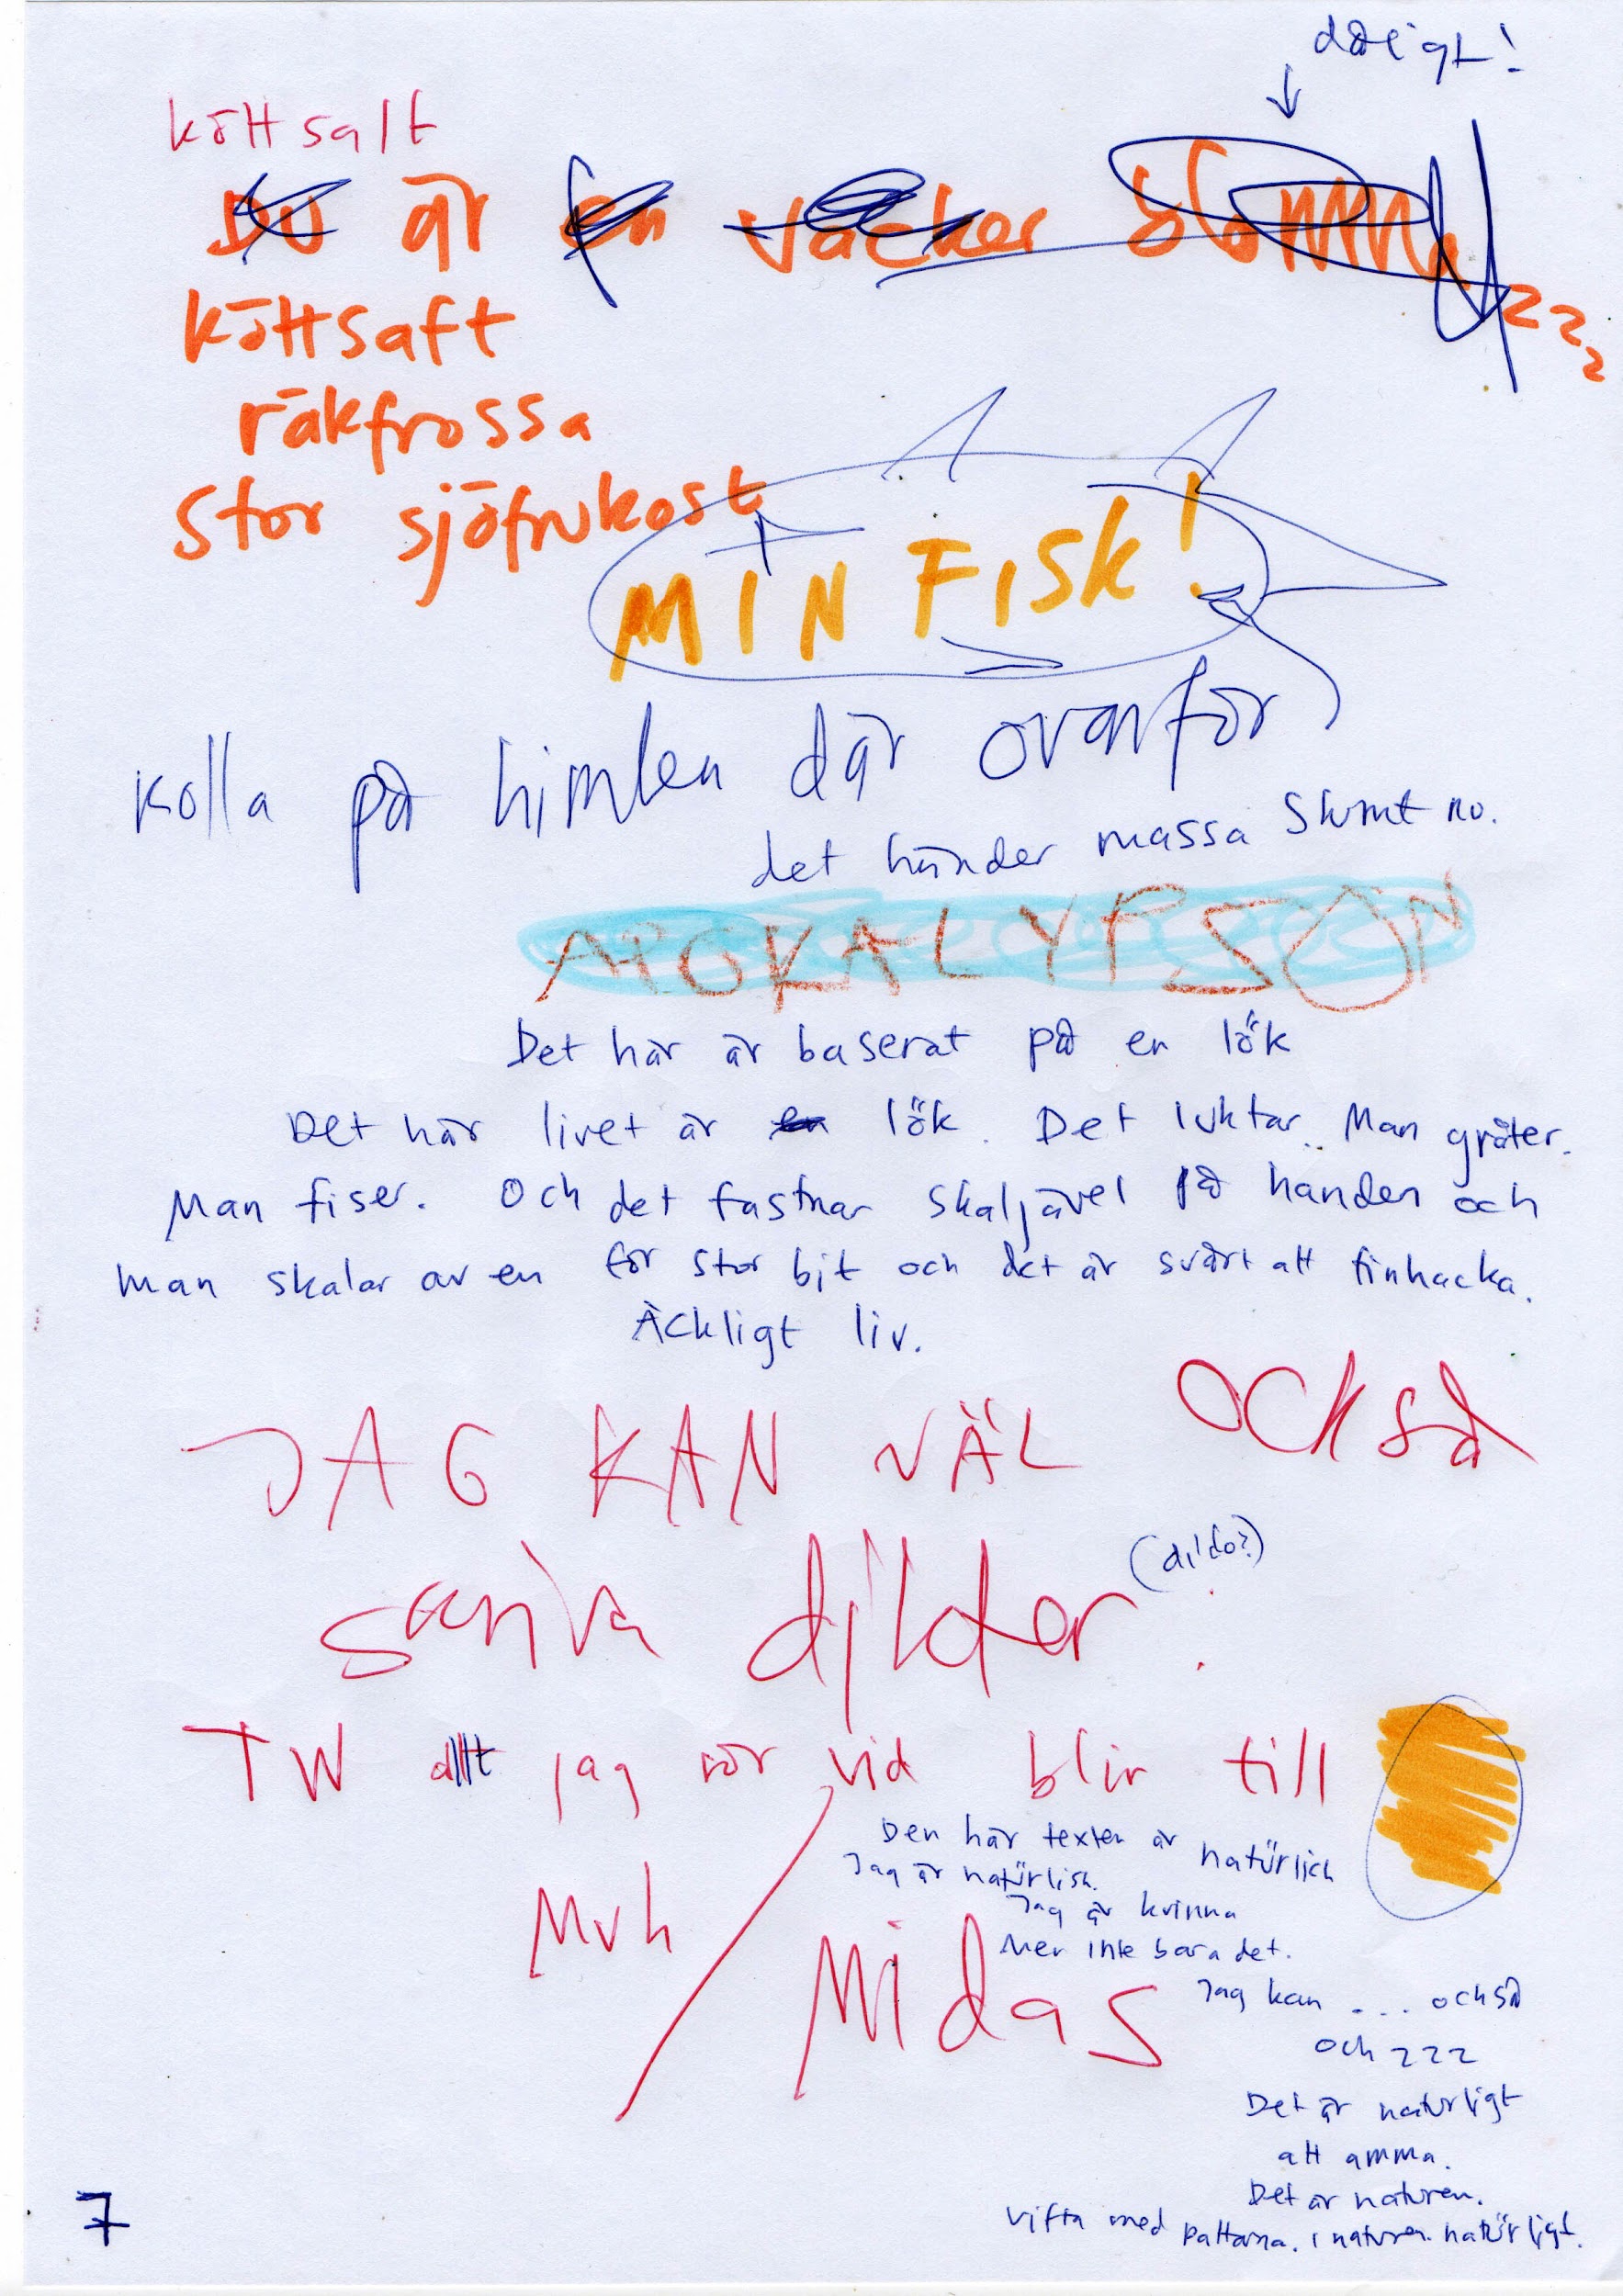 dåligt!
köttsalt
Du är en vacker blomma
zzz
köttsaft
räkfrossa
stor sjöfrukost
MIN FISK!
Kolla på himlen där ovanför
det händer massa skumt nu.
APOKALYPSÖN
Det här är baserat på en lök
Det här livet är en lök. Det luktar. Man gråter.
Man fiser. Och det fastnar skaljävel på handen och
man skalar av en för stor bit och det är svårt att finhacka.
Äckligt liv.
JAG KAN VÄL OCKSÅ
(dildo?)
skriva dikter.
TW allt jag rör vid blir till
Den här texten är natürlich
Jag är natürlish.
Jag är kvinna
Men inte bara det.
Mvh
Midas
Jag kan ... också
och zzz
Det är naturligt
att amma.
Det är naturen.
Vifta med pattarna. i naturen. natürligt.
7